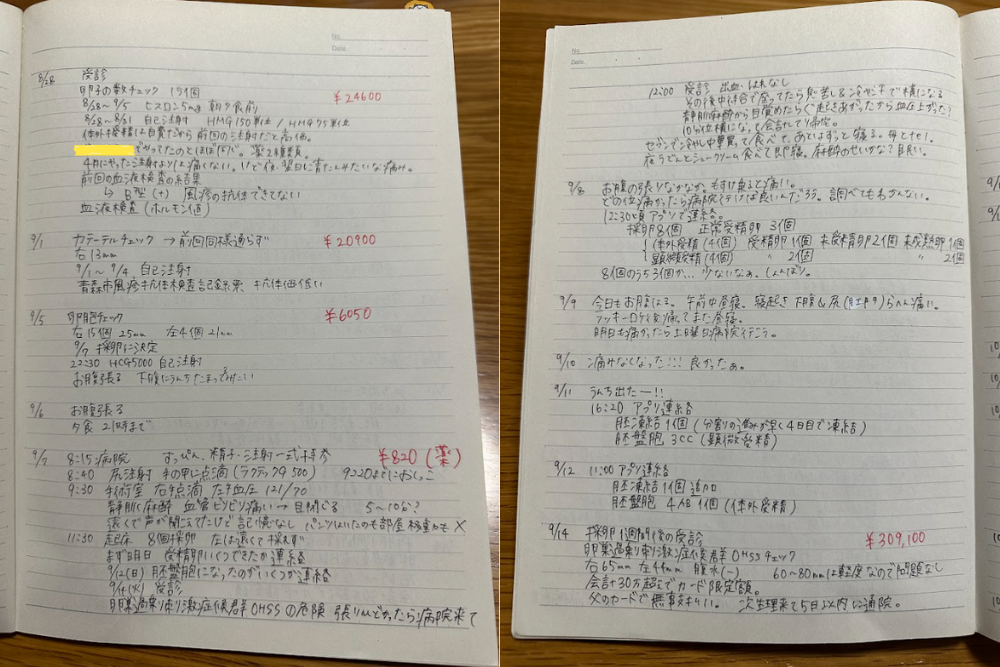 No.
Date
8/28 受診
卵子の数チェック 19個 ¥24600
8/28〜9/5 ヒスロン5mg 朝夕食前
8/28〜8/31 自己注射 HMG150単位 / HMG75単位
体外受精は自費だから前回の注射だと高価。
でやってたのとほぼ同じ。薬2種類。
4月にやった注射よりは痛くない。けど後、翌日に青たんみたいな痛み。
前回の血液検査の結果
↳ B型(+) 風疹の抗体できてない
血液検査(ホルモン値)
9/1 カテーテルチェック → 前回同様通らず ¥20900
右13mm
9/1〜9/4 自己注射
青森市風疹抗体検査記録票 抗体価低い
9/5 卵胞チェック ¥6050
右15個 25mm 左4個 21mm
9/7 採卵に決定
22:30 HCG5000 自己注射
お腹張る 下腹にうんちたまってるみたい
9/6 お腹張る
夕食 21時まで
9/7 8:15 病院 すっぴん、精子・注射一式持参 ¥820(薬)
8:40 尻注射 手の甲に点滴(ラクテックG 500) 9:20までにおしっこ
9:30 手術室 右手点滴 左手血圧 121/70
静脈麻酔 血管ビリビリ痛い → 目閉じる 5〜10分?
遠くで声が聞こえてたけど記憶なし パンツはいたのも部屋移動も×
11:30 起床 8個採卵 左は遠くて採れず
まず明日 受精卵いくつできたか連絡
9/12(日) 胚盤胞になったのがいくつか連絡
9/14(火) 受診
卵巣過剰刺激症候群OHSSの危険 張りひどかったら病院来て
No.
Date
12:00 受診 出血・はれなし
その後中待合で座ってたら気分悪し&冷や汗で横になる
静脈麻酔から目覚めたらすぐ起きあがったから血圧上がった?
10分位横になって会計して帰宅。
セブンで冷やし中華買って食べて、あとはずっと寝る。母とTel。
夜うどんとシュークリーム食べて即寝。麻酔のせいかな?目良い。
9/8 お腹の張りなかなか。もすけ乗ると痛い。
どの位痛かったら病院て行けば良いんだろう。調べてもわかんない。
12:30頃 アプリで連絡。
採卵8個 正常受精卵 3個
体外受精(4個) 受精卵1個 未受精卵2個 未成熟卵1個
顕微受精(4個) 〃 2個 〃 2個
8個のうち3個か… 少ないなぁ。しょんぼり。
9/9 今日もお腹はる。午前中昼寝、寝起き下腹&尻(肛門)らへん痛い。
クッキーロケ&お腹痛でまた昼寝。
明日も痛かったら土曜日病院行こう。
9/10 痛みなくなった!!! 良かったぁ。
9/11 うんち出たー!!
16:20 アプリ連絡
胚凍結 1個(分割の進みが早く4日目で凍結)
胚盤胞 3CC(顕微受精)
9/12 11:00 アプリ連絡
胚凍結 1個追加
胚盤胞 4AB 1個(体外受精)
9/14 採卵1週間後の受診 ¥309,100
卵巣過剰刺激症候群OHSSチェック
右65mm 左44mm 腹水(−) 60〜80mmは軽度なので問題なし
会計30万超えでカード限度額。
父のカードで無事支払い。 次生理来て5日以内に通院。